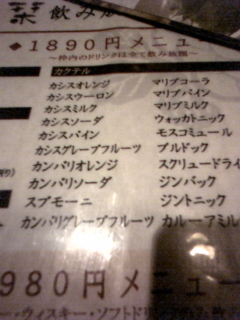 栞 飲み放
◆1890円メニュ
～枠内のドリンクは全て飲み放題～
カクテル
カシスオレンジ マリブコーラ
カシスウーロン マリブパイン
カシスミルク マリブミルク
カシスソーダ ウォッカトニック
カシスパイン モスコミュール
カシスグレープフルーツ ブルドック
カンパリオレンジ スクリュードライ
カンパリソーダ ジンバック
スプモーニ ジントニック
カンパリグレープフルーツ カルーアミル
980円メニュー
ー・ウィスキー・ソフトドリ